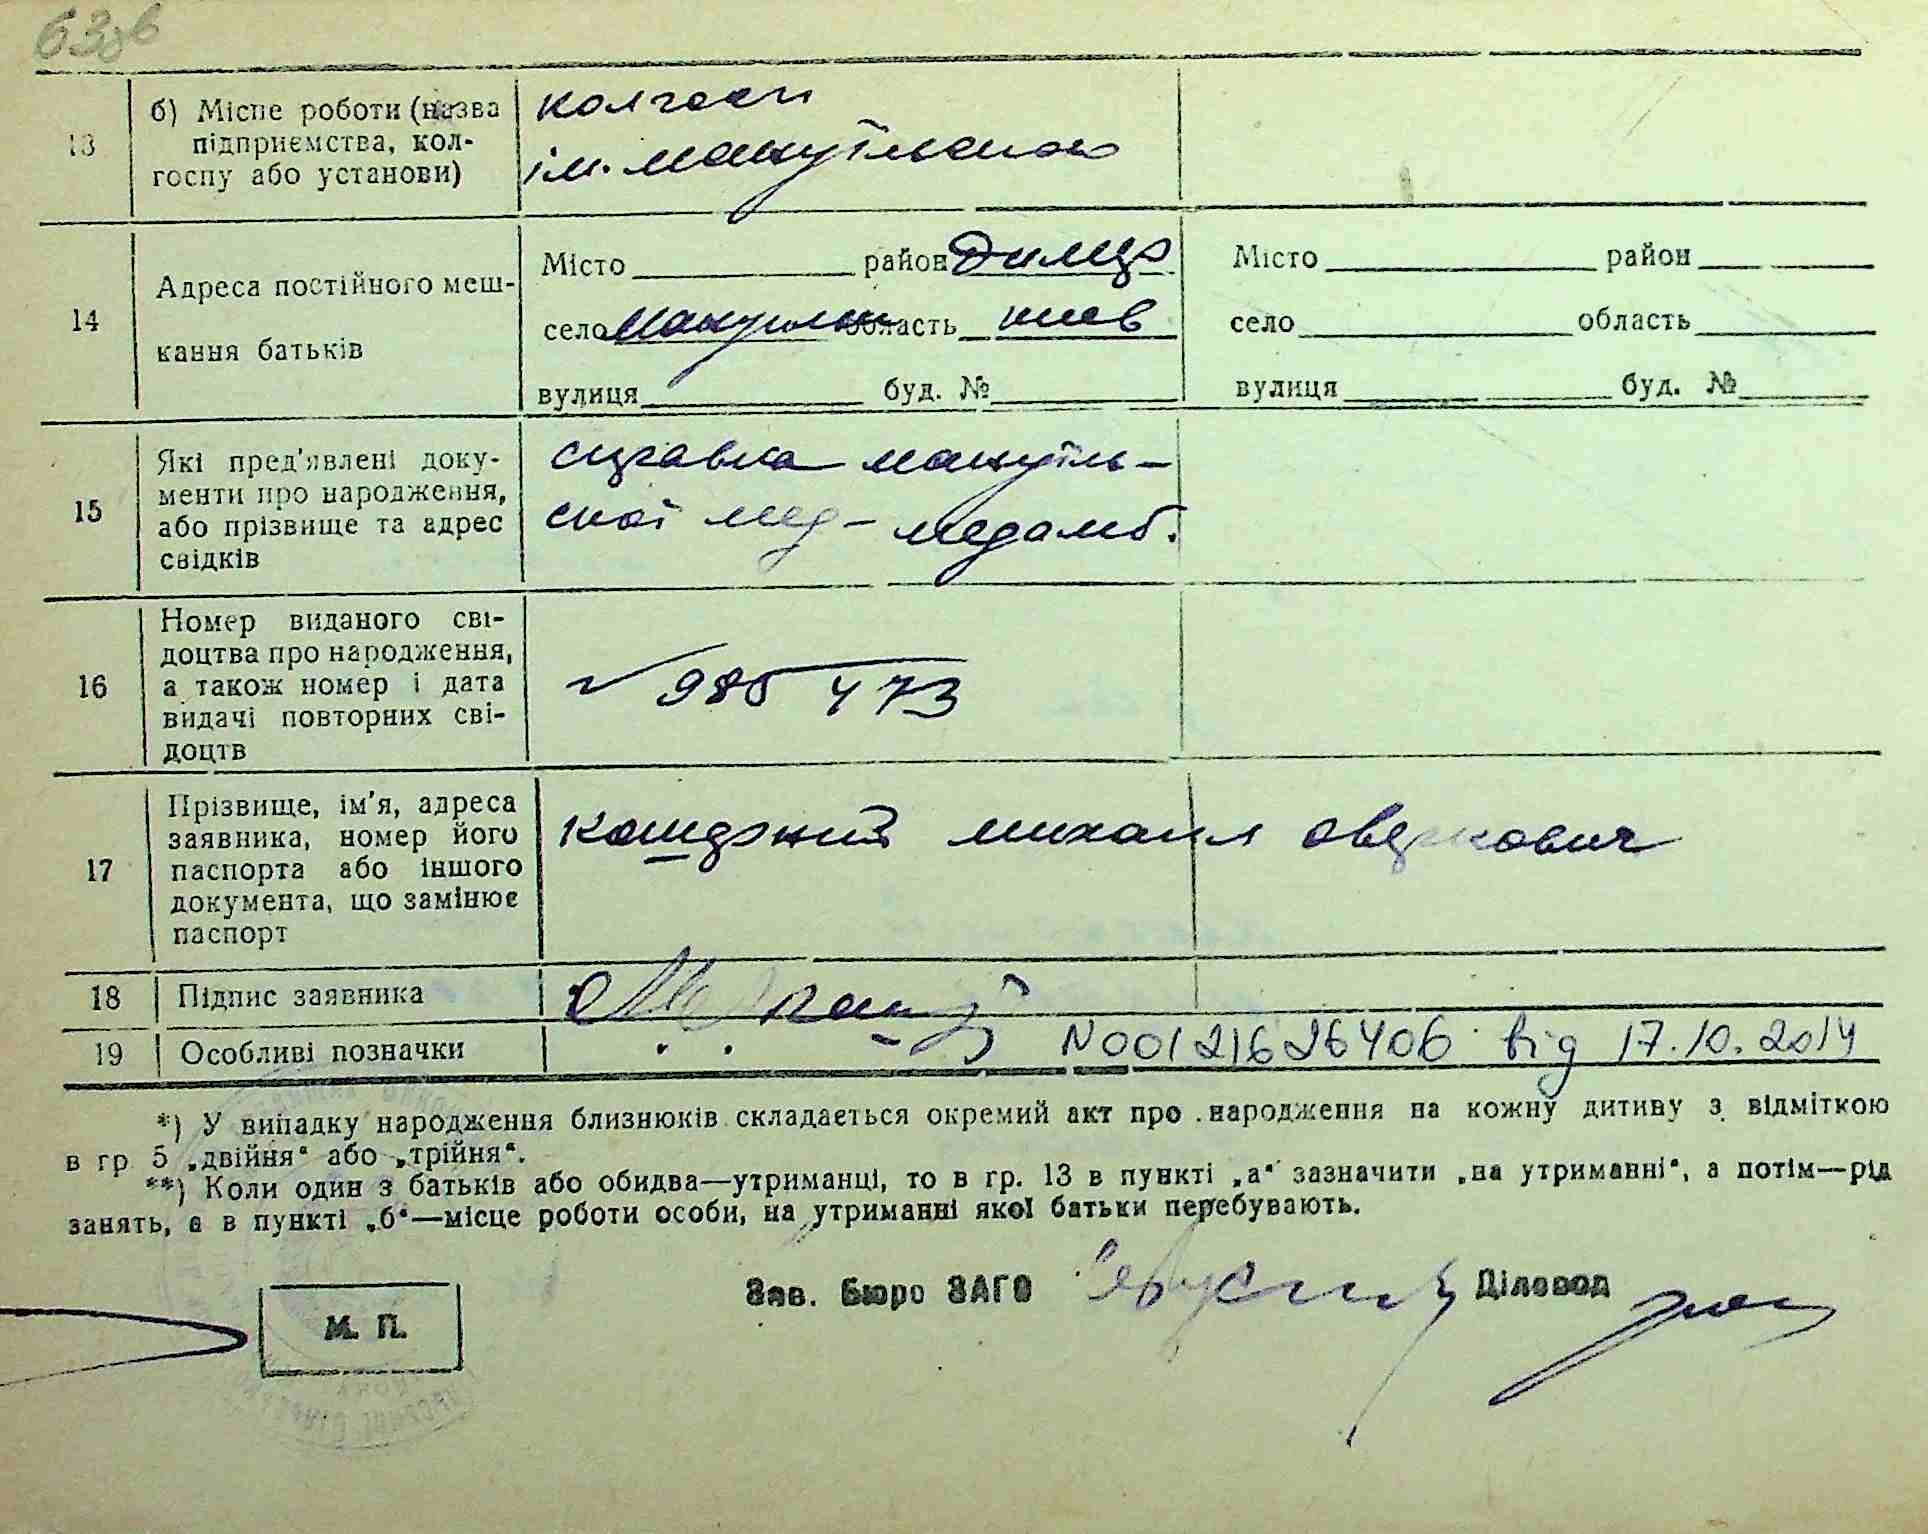 63об
13
б) Місце роботи (назва
підприємства, кол-
госпу або установи)
колгосп
ім. Мануїльского
14
Адреса постійного меш-
кання батьків
Місто район Димер
село Мануильск область киев
вулиця буд. №
Місто район
село область
вулиця буд. №
15
Які пред'явлені доку-
менти про народження,
або прізвище та адрес
свідків
справка мануїль-
ської мед- медамб.
16
Номер виданого сві-
доцтва про народження,
а також номер і дата
видачі повторних сві-
доцтв
985473
17
Прізвище, ім'я, адреса
заявника, номер його
паспорта або іншого
документа, що замінює
паспорт
михаил
18
Підпис заявника
19
Особливі позначки
N00121626406 від 17.10.2014
*) У випадку народження близнюків складається окремий акт про народження на кожну дитину з відміткою
в гр 5 „двійня“ або „трійня“.
**) Коли один з батьків або обидва—утриманці, то в гр. 13 в пункті „а“ зазначити „на утриманні“, а потім—рід
занять, а в пункті „б“—місце роботи особи, на утриманні якої батьки перебувають.
Зав. Бюро ЗАГС
Діловод
М. П.